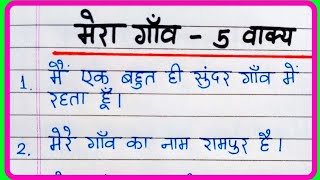 मेरा गाँव - 5 वाक्य
1. मैं एक बहुत ही सुंदर गाँव में
रहता हूँ।
2. मेरे गाँव का नाम रामपुर है।